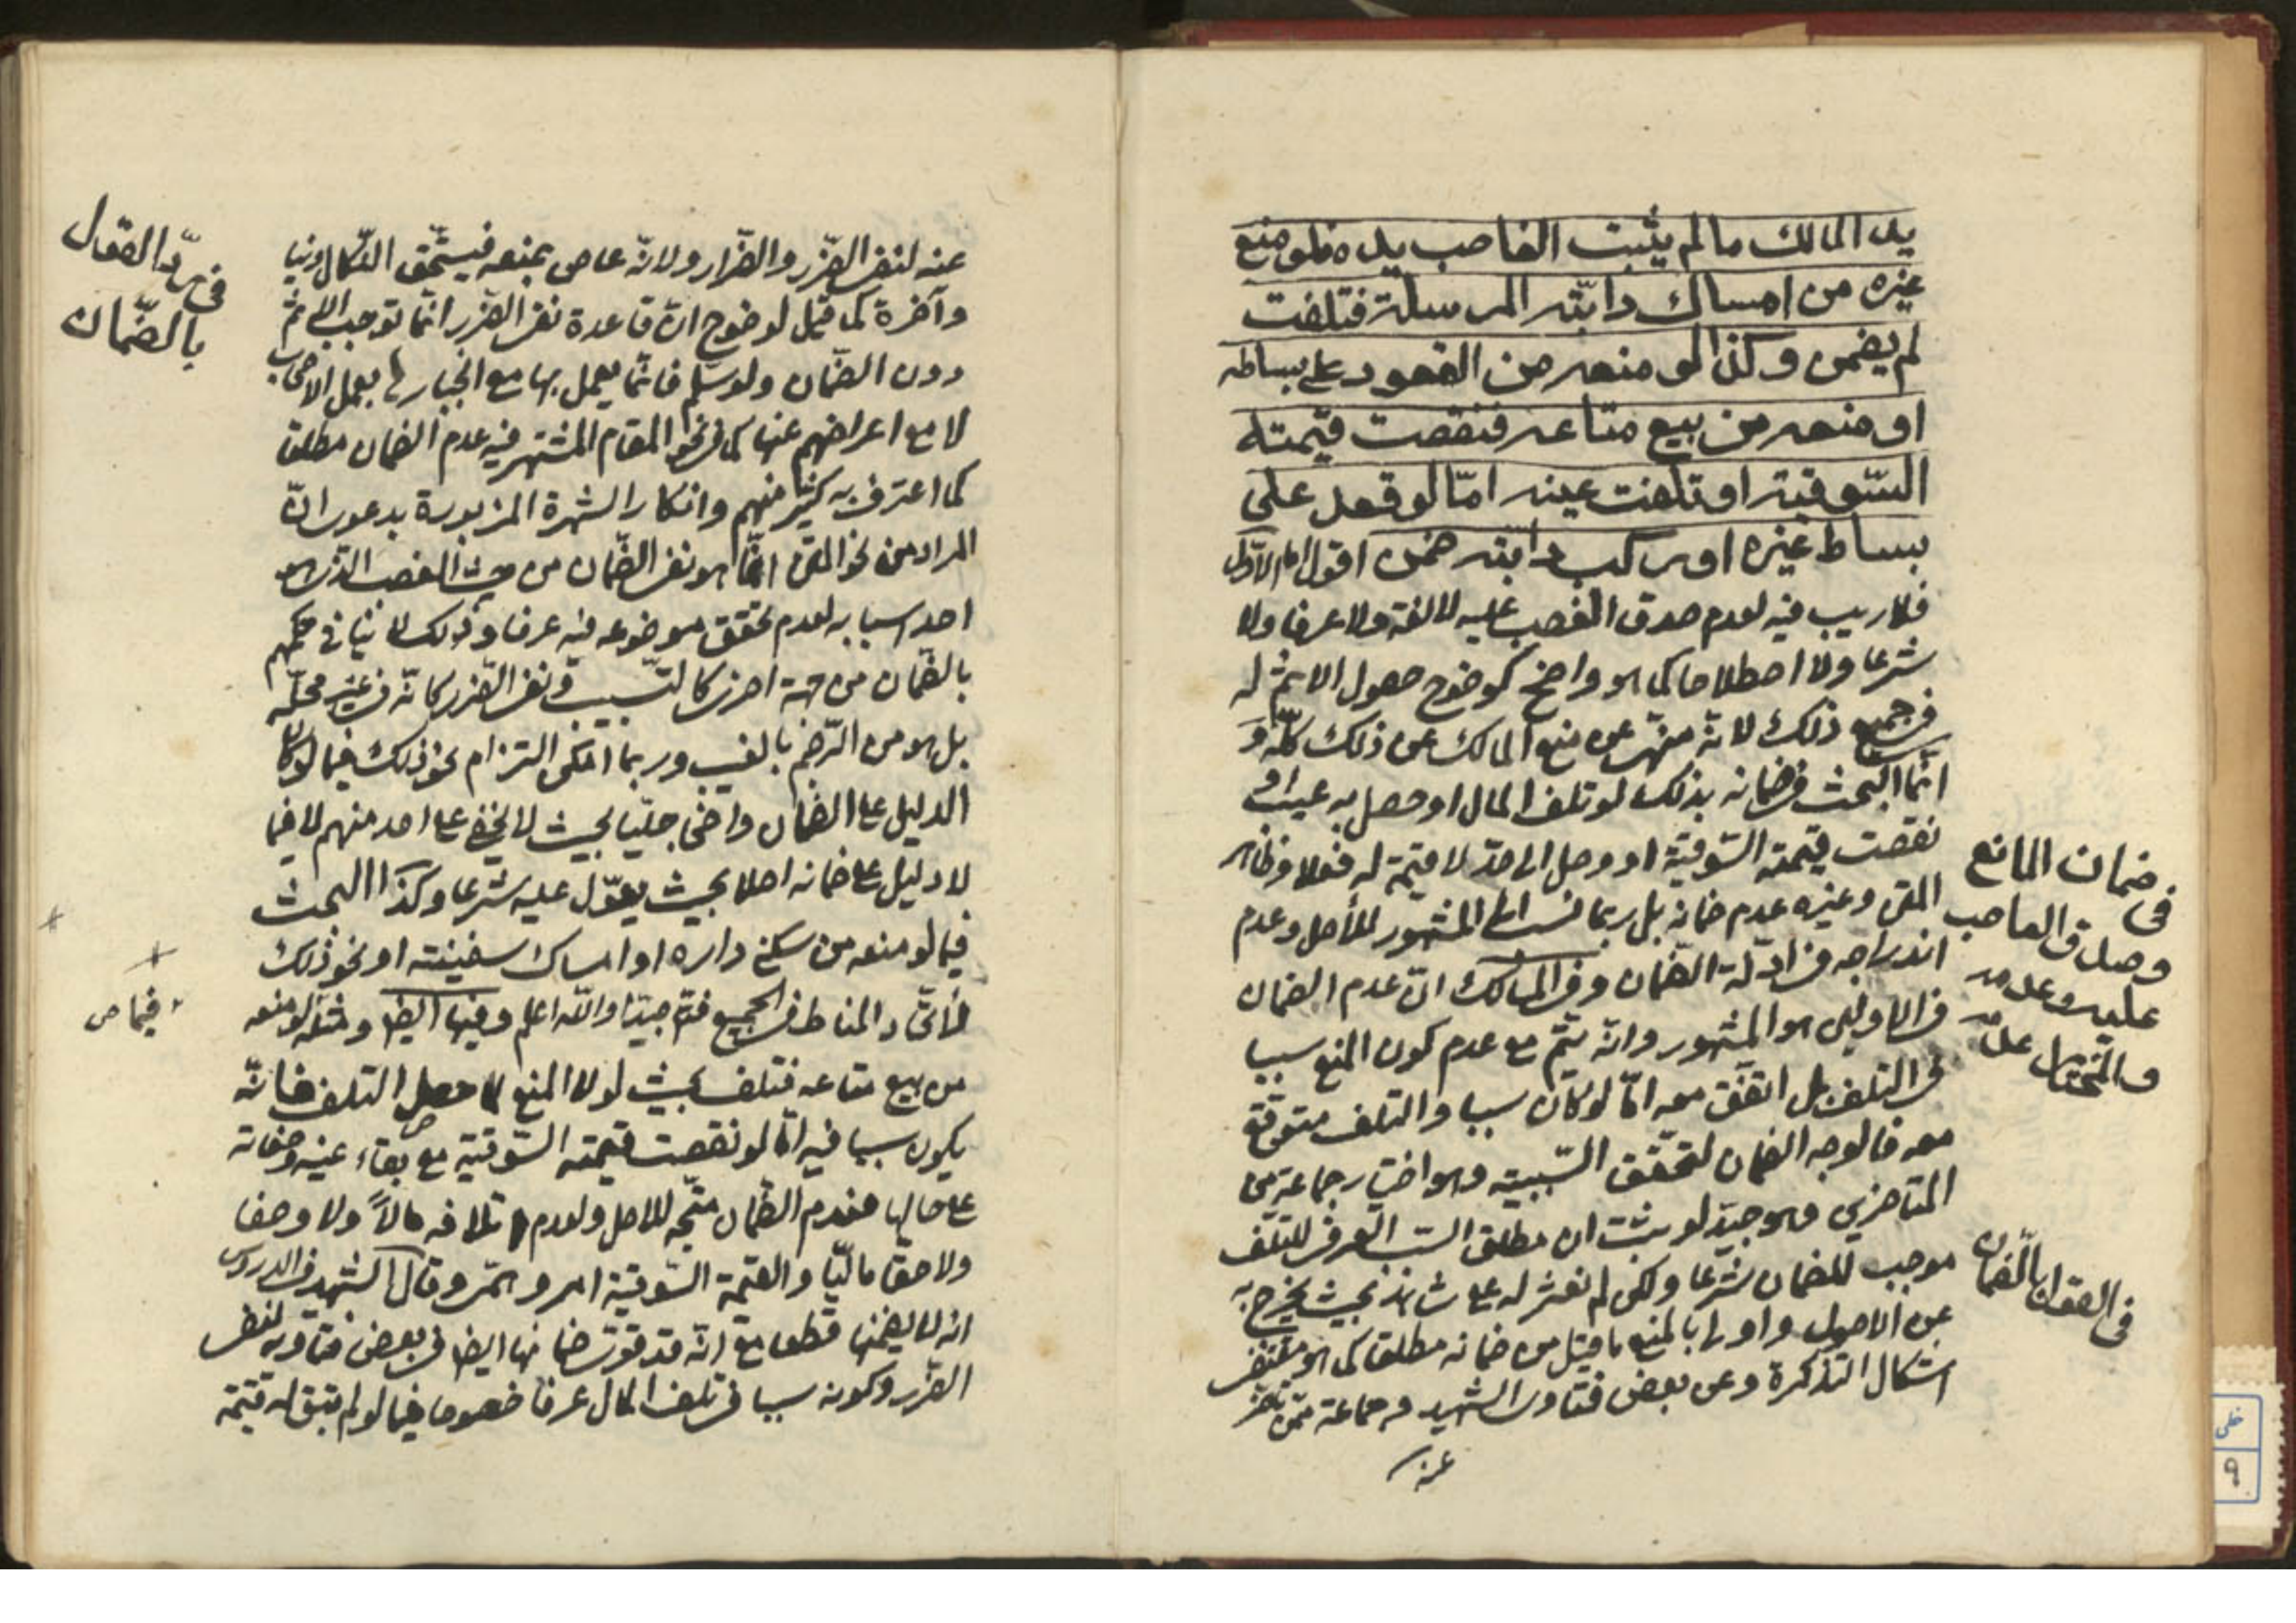 يد المالك ما لم يثبت الغاصب يده فلو منع
غيره من امساك دابّته المرسلة فتلفت
لم يضمن وكذا لو منعه من القعود على بساطه
او منعه من بيع متاعه فنقصت قيمته
السّوقية او تلفت عينه امّا لو قعد على
بساط غيره او ركب دابّته ضمن اقول اما الاوّل
فلا ريب فيه لعدم صدق الغصب عليه لا لغة ولا عرفا ولا
شرعا ولا اصطلاحا كما هو واضح كوضوح حصول الاثم له
في جميع ذلك لانّه منهىّ عن منع المالك عن ذلك كلّه و
انّما البحث في ضمانه بذلك لو تلف المال او حصل به عيب او
نقصت قيمته السّوقيّة او وصل الى حدّ لا قيمة له فعلا وظاهر
المتن وغيره عدم ضمانه بل ربما نسب الى المشهور للأصل وعدم
اندراجه في ادلّة الضّمان وفي المسالك انّ عدم الضمان
في الاوّلين هو المشهور وانّه يتمّ مع عدم كون المنع سببا
في التلف بل اتفق معه امّا لو كان سببا والتلف متوقّع
معه فالوجه الضمان لتحقّق السّببيّة وهو اختيار جماعة من
المتاخرين وهو جيّد لو يثبت ان مطلق السبب العرفي للتلف
موجب للضمان شرعا ولكن لم نعثر له على شاهد بحيث يخرج به
عن الاصول واولى بالمنع ما قيل من ضمانه مطلقا كما هو مقتضى
اشكال التذكرة وعن بعض فتاوى الشهيد وجماعة ممّن تاخّر
عنه
في ضمان المانع
وصدق الغاصب
عليه وعدمه
والمختار عدمه
في القول بالضمان
عنه لنفى الضّرر والضّرار ولانّه عاص بمنعه فيستحقّ النّكال دنيا
وآخرة كما قيل لوضوح انّ قاعدة نفى الضّرر انّما توجب الاثم
دون الضّمان ولو سلّم فانّما يعمل بها مع انجبارها بعمل الاصحاب
لا مع اعراضهم عنها كما في نحو المقام المشتهر فيه عدم الضمان مطلقا
كما اعترف به كثير منهم وانكار الشهرة المزبورة بدعوى انّ
المراد من نحو المتن انّما هو نفى الضّمان من حيث الغصب الذّي هو
احد اسبابه لعدم تحقق موضوعه فيه عرفا وذلك لا ينافى حكمهم
بالضّمان من جهة اخرى كالتسبيب ونفى الضّرر كانّه في غير محلّه
بل هو من الرّجم بالغيب وربما امكن التزام نحو ذلك فيما لو كان
الدليل على الضّمان واضحا جليّا بحيث لا يخفى على احد منهم لا فيما
لا دليل على ضمانه اصلا بحيث يعوّل عليه شرعا وكذا البحث
فيما لو منعه من سكنى داره او امساك سفينته او نحو ذلك
لاتّحاد المناط في الجميع فتامّ جيّدا واللّه اعلم وفيها ايضا ومثله لو منعه
من بيع متاعه فتلف بحيث لولا المنع لما حصل التلف فانّه
يكون سببا فيه امّا لو نقصت قيمته السّوقيّة مع بقاء عينه وصفاته
على حالها فعدم الضّمان متّجه للاصل ولعدم اتلافه مالاً ولا وصفا
ولا حقّا ماليّا والقيمة السّوقيّة امر وهمّى وقال الشهيد في الدروس
انه لا يضمنها قطعا مع انّه قد قوّى ضمانها ايضا في بعض فتاويه لنفى
الضّرر وكونه سببا في تلف المال عرفا خصوصا فيما لو لم تبق له قيمة
في ردّ القول
بالضّمان
فيما ص
خطى
٩